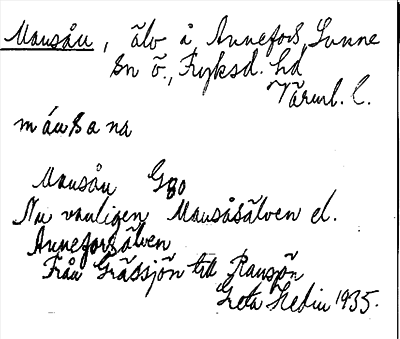 Mausån, älv å Annefors, Sunne
sn ö., Fryksd. hd
Värml. l.
máusana
Mausån G80
Nu vanligen Mausåsälven el.
Anneforsälven
Från Grässjön till Ransjön
Greta Hedin 1935.